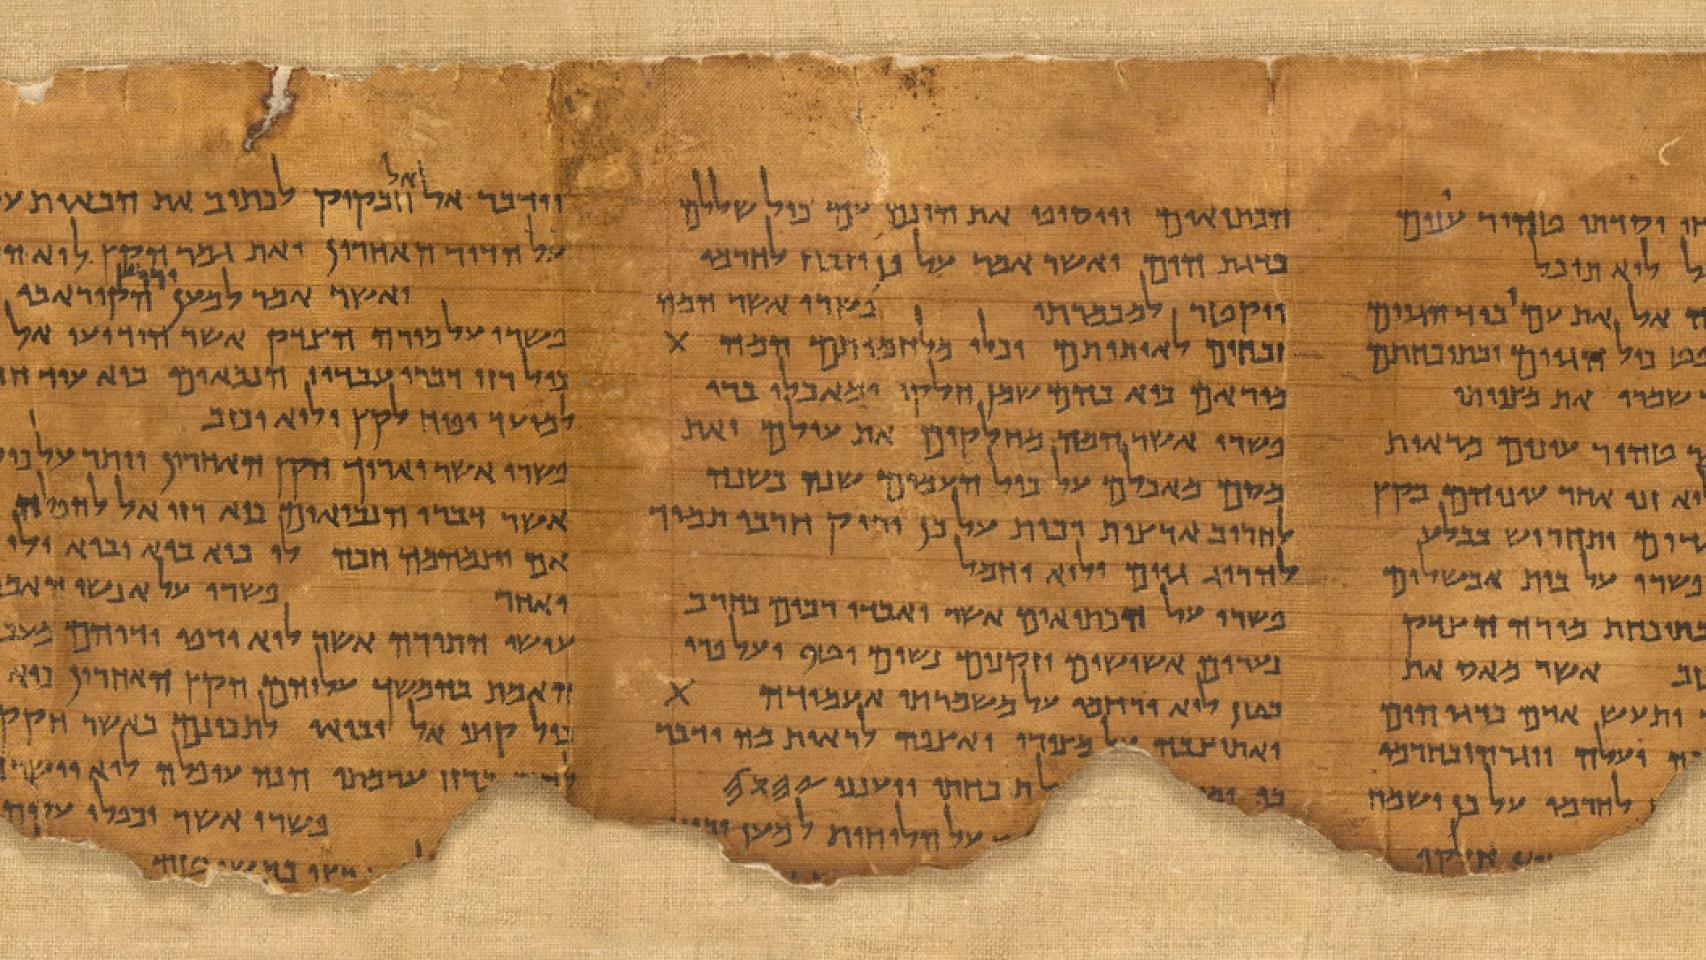 טהור עינים
לוא תוכל
אל את עמו ביד הגוים
כול הגוים ובתוכחתם
שמרו את מצוותו
טהור עינים מראות
זנו אחר עיניהם בקץ
ותחריש בבלע
פשרו על בית אבשלום
בתוכחת מורה הצדק
אשר מאס את
ותעש אדם כדגי הים
יעלה ויגרהו בחרמו
לחרמו על כן ישמח
חלקו
הכתיאים ויוסיפו את הונם עם כול שללם
כדגת הים ואשר אמר על כן יזבח לחרמו
ויקטר למכמרתו פשרו אשר המה
זבחים לאותותם וכלי מלחמותם המה X
מוראם כיא בהם שמן חלקו ומאכלו ברי
פשרו אשר המה מחלקים את עולם ואת
מסם מאכלם על כול העמים שנה בשנה
לחריב ארצות רבות על כן יריק חרבו תמיד
להרוג גוים ולוא יחמל
פשרו על הכתיאים אשר יאבדו רבים בחרב
נערים אשישים וזקנים נשים וטף ועל פרי
בטן לוא ירחמו על משמרתי אעמודה X
ואתיצבה על מצורי ואצפה לראות מה ידבר
בי ויענני 𐤉𐤄𐤅𐤄
על הלוחות למען ירוץ
וידבר אל אל חבקוק לכתוב את הבאות
על הדור האחרון ואת גמר הקץ לוא
ואשר אמר למען ירוץ הקורא בו
פשרו על מורה הצדק אשר הודיעו אל
כול רזי דברי עבדיו הנבאים כיא עוד
למועד יפח לקץ ולוא יכזב
פשרו אשר יארוך הקץ האחרון ויתר על
אשר דברו הנביאים כיא רזי אל להפלה
אם יתמהמה חכה לו כיא בוא יבוא
יאחר פשרו על אנשי
עושי התורה אשר לוא ירפו ידיהם
האמת בהמשך עליהם הקץ האחרון כיא
כול קיצי אל יבואו לתכונם כאשר חקק
ברזי ערמתו הנה עופלה לוא
פשרו אשר יכפלו